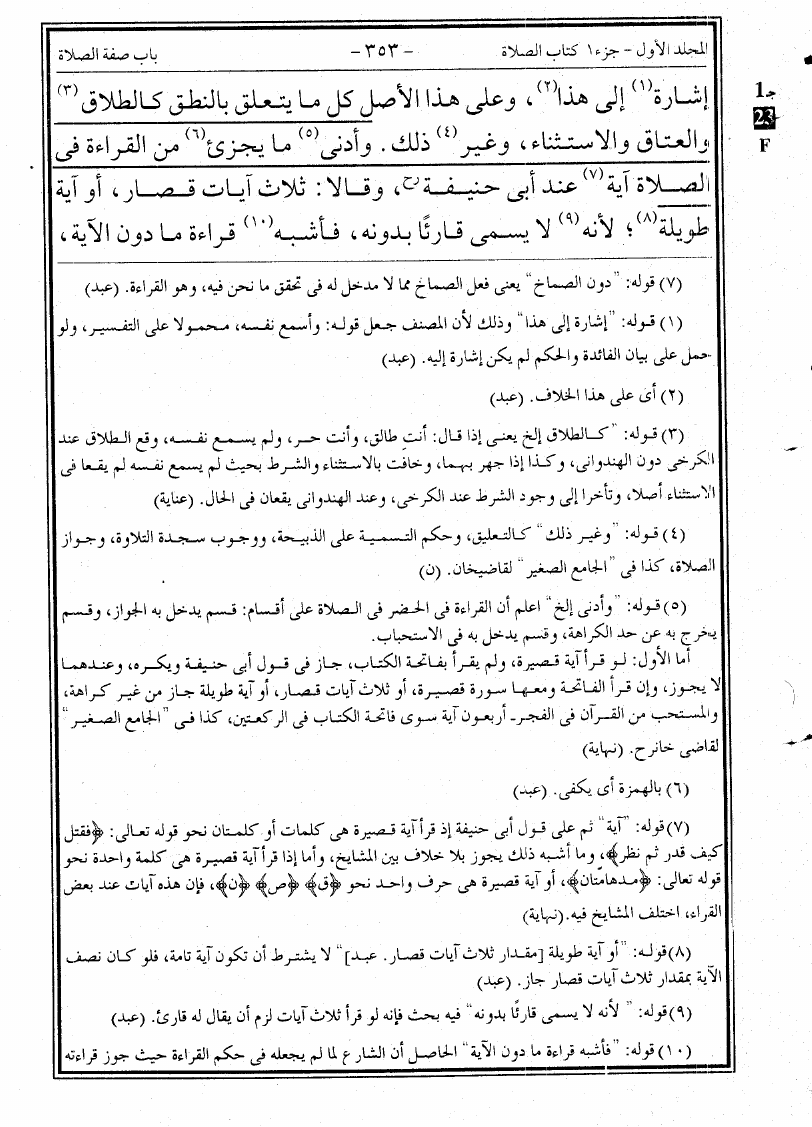 المجلد الأول - جزء ١ كتاب الصلاة - ٣٥٣ - باب صفة الصلاة
جـ 1
23
F
إشارة(١) إلى هذا(٢)، وعلى هذا الأصل كل ما يتعلق بالنطق كالطلاق(٣)
والعتاق والاستثناء، وغير(٤) ذلك. وأدنى(٥) ما يجزئ(٦) من القراءة فى
الصلاة آية(٧) عند أبى حنيفةؒ، وقالا: ثلاث آيات قصار، أو آية
طويلة(٨)؛ لأنه(٩) لا يسمى قارئًا بدونه، فأشبه(١٠) قراءة ما دون الآية،
(٧) قوله: "دون الصماخ" يعنى فعل الصماخ مما لا مدخل له فى تحقق ما نحن فيه، وهو القراءة. (عبد)
(١) قوله: "إشارة إلى هذا" وذلك لأن المصنف جعل قوله: وأسمع نفسه، محمولا على التفسير، ولو
حمل على بيان الفائدة والحكم لم يكن إشارة إليه. (عبد)
(٢) أى على هذا الخلاف. (عبد)
(٣) قوله: "كالطلاق إلخ يعنى إذا قال: أنتِ طالق، وأنت حر، ولم يسمع نفسه، وقع الطلاق عند
الكرخى دون الهندوانى، وكذا إذا جهر بهما، وخافت بالاستثناء والشرط بحيث لم يسمع نفسه لم يقعا فى
الاستثناء أصلا، وتأخرا إلى وجود الشرط عند الكرخى، وعند الهندوانى يقعان فى الحال. (عناية)
(٤) قوله: "وغير ذلك" كالتعليق، وحكم التسمية على الذبيحة، ووجوب سجدة التلاوة، وجواز
الصلاة، كذا فى "الجامع الصغير" لقاضيخان. (ن)
(٥) قوله: "وأدنى إلخ" اعلم أن القراءة فى الحضر فى الصلاة على أقسام: قسم يدخل به الجواز، وقسم
يخرج به عن حد الكراهة، وقسم يدخل به فى الاستحباب.
أما الأول: لو قرأ آية قصيرة، ولم يقرأ بفاتحة الكتاب، جاز فى قول أبى حنيفة ويكره، وعندهما
لا يجوز، وإن قرأ الفاتحة ومعها سورة قصيرة، أو ثلاث آيات قصار، أو آية طويلة جاز من غير كراهة،
والمستحب من القرآن فى الفجر- أربعون آية سوى فاتحة الكتاب فى الركعتين، كذا فى "الجامع الصغير"
لقاضى خانرح. (نهاية)
(٦) بالهمزة أى يكفى. (عبد)
(٧) قوله: "آية" ثم على قول أبى حنيفة إذ قرأ آية قصيرة هى كلمات أو كلمتان نحو قوله تعالى: ﴿فقتل
كيف قدر ثم نظر﴾، وما أشبه ذلك يجوز بلا خلاف بين المشايخ، وأما إذا قرأ آية قصيرة هى كلمة واحدة نحو
قوله تعالى: ﴿مدهامّتان﴾، أو آية قصيرة هى حرف واحد نحو ﴿ق﴾ ﴿ص﴾ ﴿ن﴾، فإن هذه آيات عند بعض
القراء، اختلف المشايخ فيه.(نهاية)
(٨) قوله: "أو آية طويلة [مقدار ثلاث آيات قصار. عبد]" لا يشترط أن تكون آية تامة، فلو كان نصف
الآية بمقدار ثلاث آيات قصار جاز. (عبد)
(٩) قوله: "لأنه لا يسمى قارئًا بدونه" فيه بحث فإنه لو قرأ ثلاث آيات لزم أن يقال له قارئ. (عبد)
(١٠) قوله: "فأشبه قراءة ما دون الآية" الحاصل أن الشارع لما لم يجعله فى حكم القراءة حيث جوز قراءته